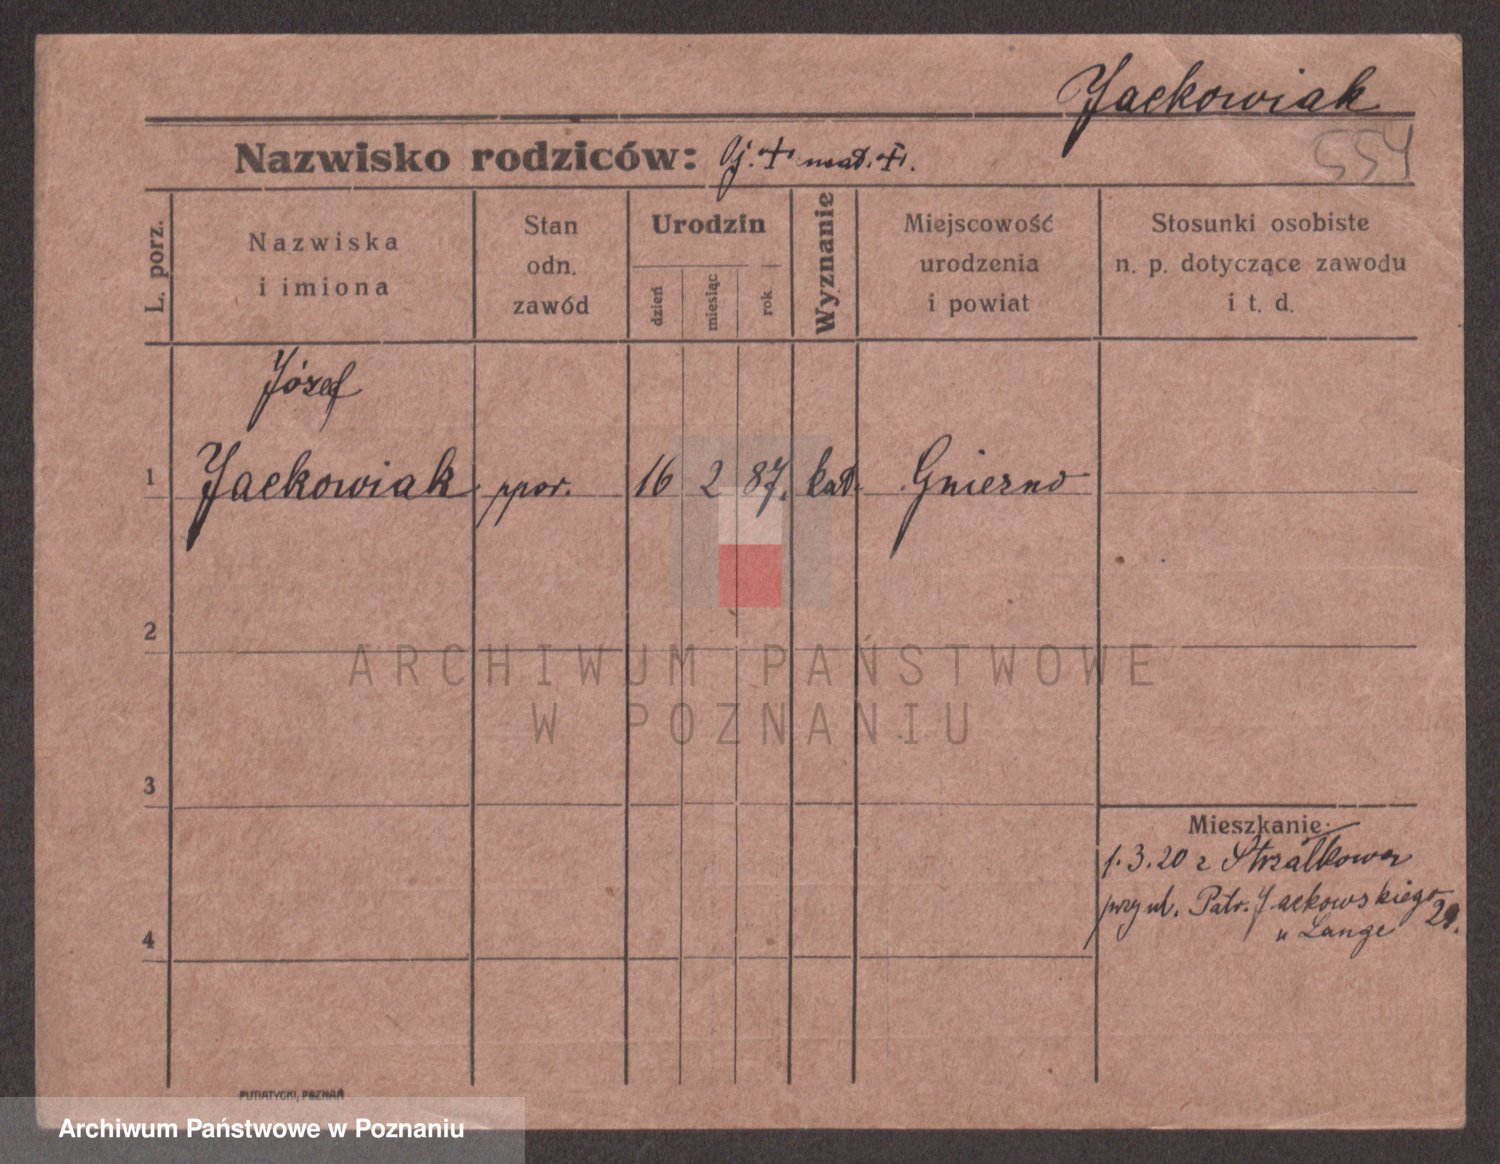 Jackowiak
Nazwisko rodziców: Oj. + mat. +.
554
L. porz.
Nazwiska
i imiona
Stan
odn.
zawód
Urodzin
dzień
miesiąc
rok
Wyznanie
Miejscowość
urodzenia
i powiat
Stosunki osobiste
n. p. dotyczące zawodu
i t. d.
Józef
1 Jackowiak ppor. 16 2 87. kat. Gniezno
2
ARCHIWUM PAŃSTWOWE
W POZNANIU
3
Mieszkanie:
1.3.20 z Strzałkowa
przy ul. Patr. Jackowskiego 29.
u Lange
4
PUTIATYCKI, POZNAŃ
Archiwum Państwowe w Poznaniu